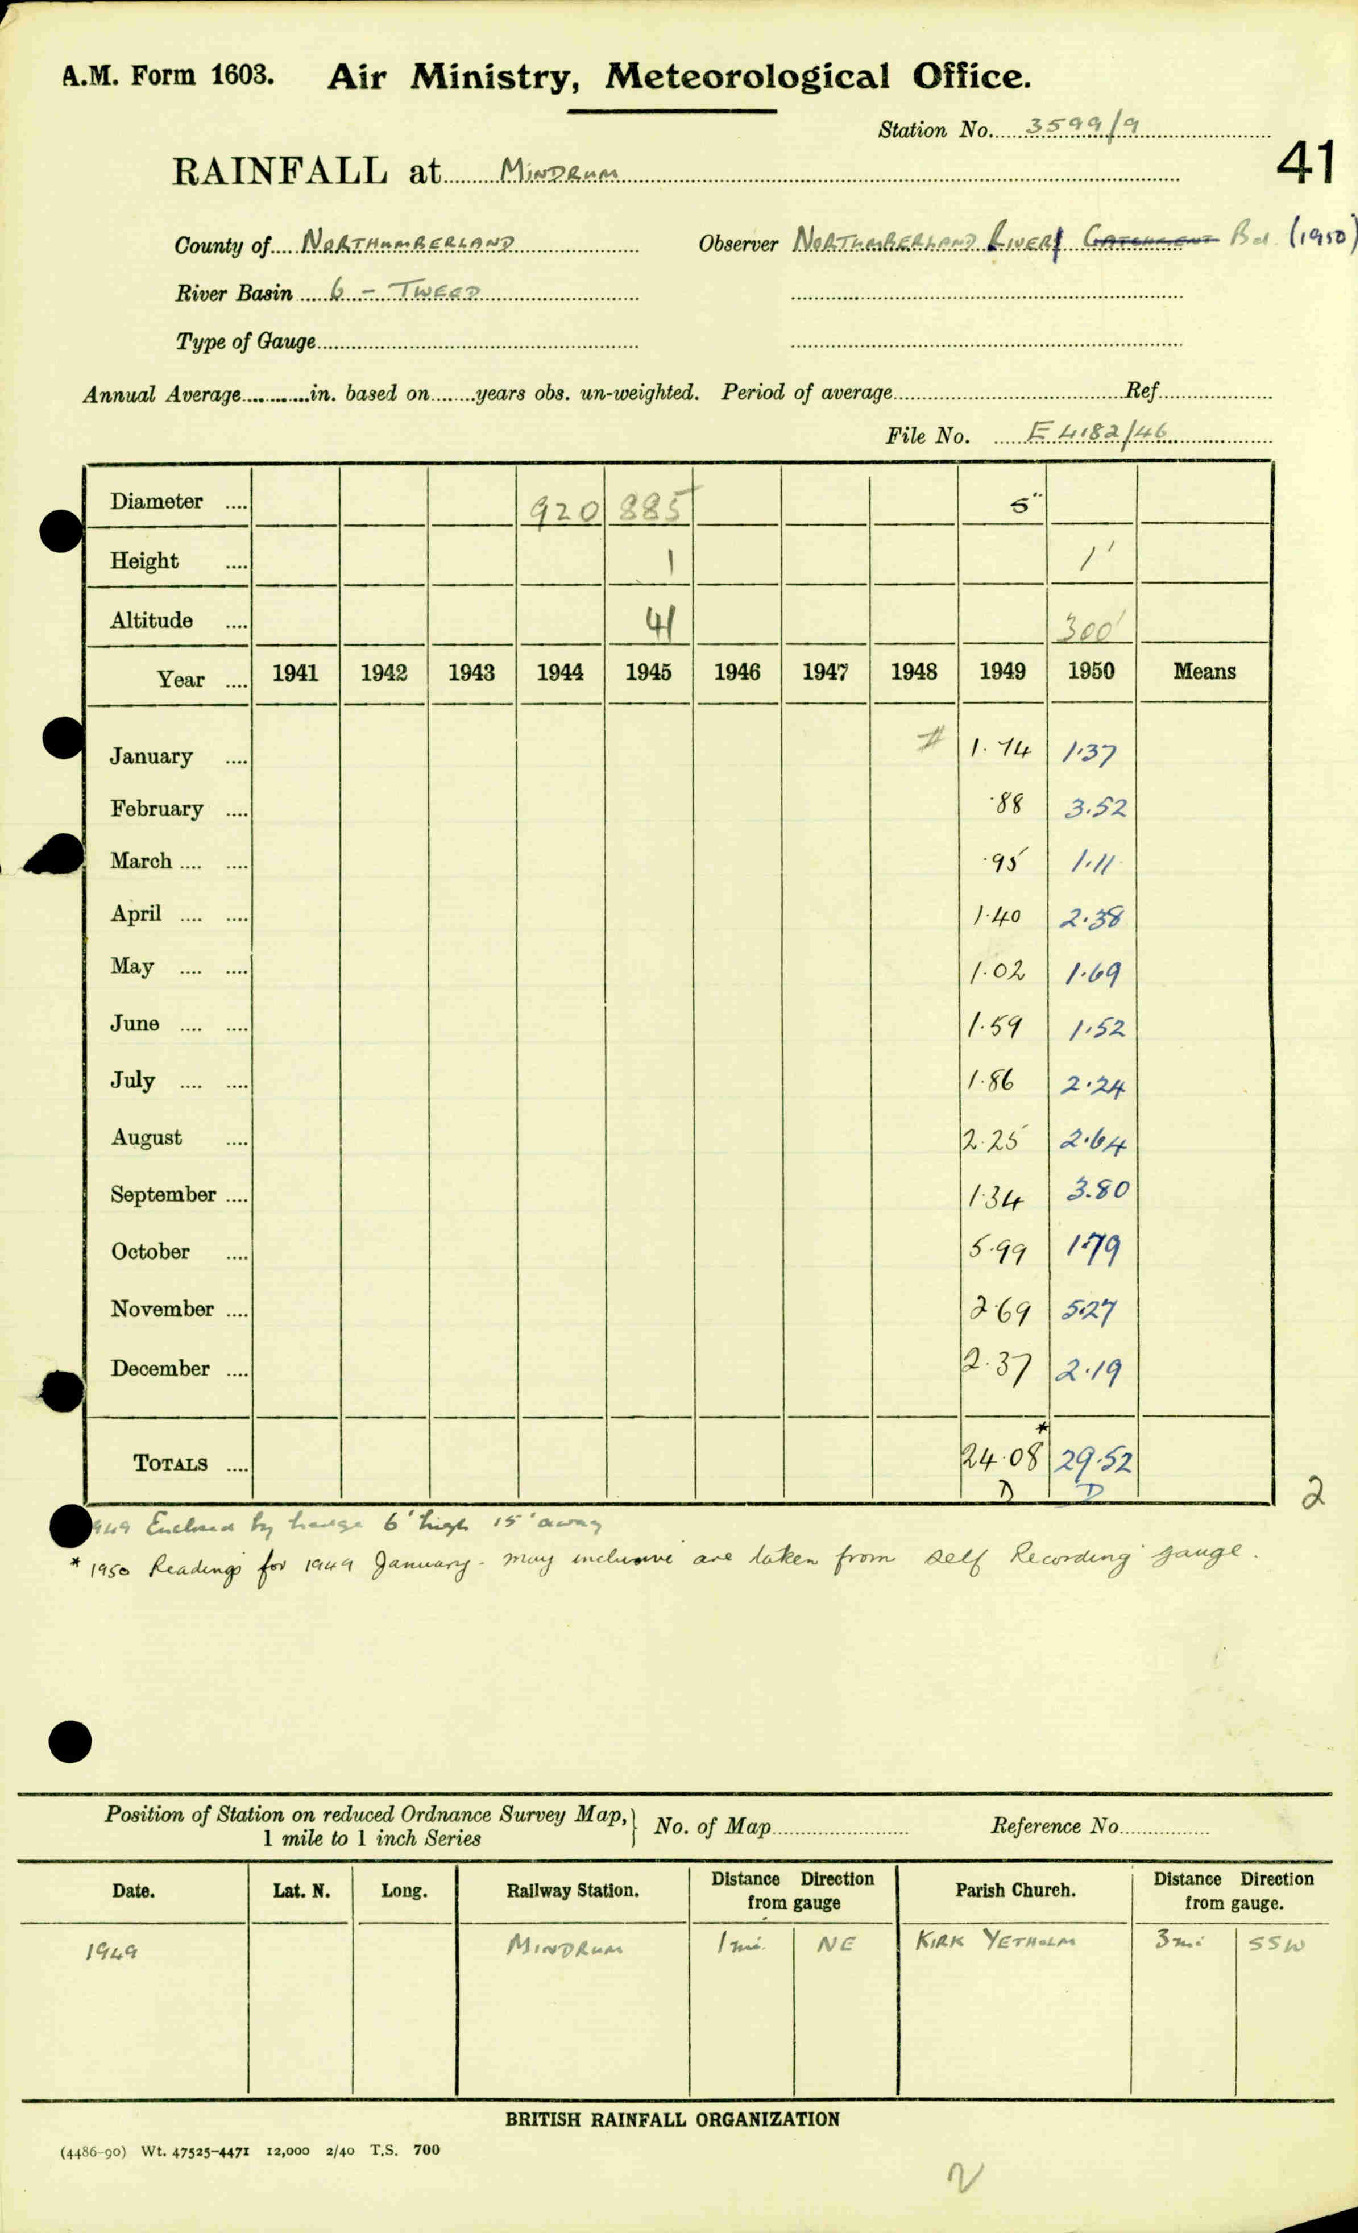 A.M. Form 1603. Air Ministry, Meteorological Office.
Station No. 3599/9
41
RAINFALL at MINDRUM
County of NORTHUMBERLAND Observer NORTHUMBERLAND RIVERS CATCHMENT Bd. (1950)
River Basin 6 - TWEED
Type of Gauge
Annual Average in. based on years obs. un-weighted. Period of average Ref.
File No. E 4182/46
Diameter 920 885 5"
Height 1 1'
Altitude 41 300'
Year 1941 1942 1943 1944 1945 1946 1947 1948 1949 1950 Means
January 1.74 1.37
February .88 3.52
March .95 1.11
April 1.40 2.38
May 1.02 1.69
June 1.59 1.52
July 1.86 2.24
August 2.25 2.64
September 1.34 3.80
October 5.99 1.79
November 2.69 5.27
December 2.37 2.19
TOTALS 24.08* 29.52
D D
2
1949 Enclosed by hedge 6' high 15' away
* 1950 Readings for 1949 January - May inclusive are taken from self Recording gauge.
Position of Station on reduced Ordnance Survey Map, 1 mile to 1 inch Series } No. of Map Reference No.
Date. Lat. N. Long. Railway Station. Distance Direction from gauge Parish Church. Distance Direction from gauge.
1949 MINDRUM 1 mi. NE KIRK YETHOLM 3 mi SSW
BRITISH RAINFALL ORGANIZATION
(4486-90) Wt. 47525-4471 12,000 2/40 T.S. 700